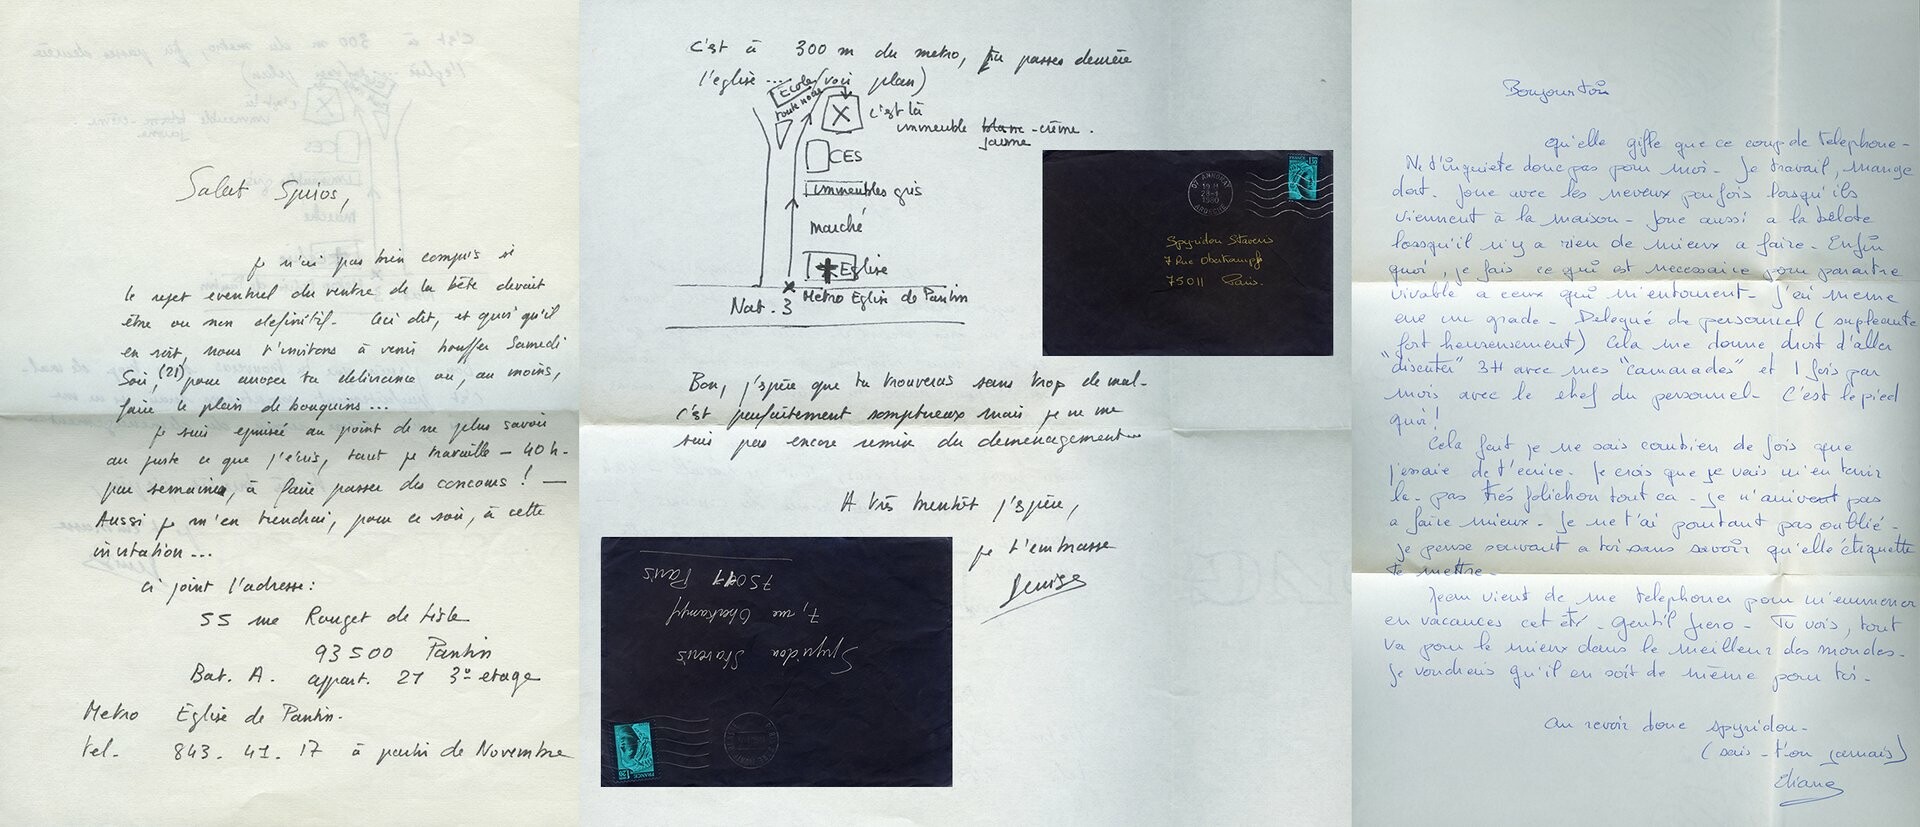 Salut Spiros,
je n'ai pas bien compris si
le rejet eventuel du ventre de la bête devait
être ou non definitif. Ceci dit, et quoi qu'il
en soit, nous t'invitons à venir bouffer Samedi
Soir, (21) pour arroser ta delivrance ou, au moins,
faire le plein de bouquins...
je suis épuisée au point de ne plus savoir
au juste ce que j'écris, tant je travaille - 40 h.
par semaine, à faire passer des concours ! —
Aussi je m'en tiendrai, pour ce soir, à cette
invitation...
ci joint l'adresse :
55 rue Rouget de Lisle
93500 Pantin
Bat. A. appart. 21 3° etage
Metro Eglise de Pantin.
tel. 843. 41. 17 à partir de Novembre
c'est à 300 m du metro, tu passes derrière
l'eglise .... (voir plan)
Ecole
route
c'est là
immeuble blanc-crème.
jaune
CES
immeubles gris
marché
Eglise
Nat. 3 Metro Eglise de Pantin
Bon, j'espère que tu trouveras sans trop de mal-
c'est parfaitement somptueux mais je ne me
suis pas encore remise du demenagement...
A très bientôt j'espère,
je t'embrasse
Denise
07 ANNONAY
23-1
1980
ARDECHE
Spyridon Staveris
7 Rue Oberkampf
75011 Paris.
Spyridon Staveris
7, rue Oberkampf
75011 Paris
1,20 FRANCE
Bonjour toi
qu'elle gifle que ce coup de telephone-
N t'inquiete donc pas pour moi. Je travail, mange
dort. Joue avec les neveux parfois lorsqu'ils
viennent à la maison- Joue aussi a la belote
lorsqu'il n'y a rien de mieux a faire- Enfin
quoi, je fais ce qui est necessaire pour paraitre
vivable a ceux qui m'entourent- J'ai meme
eue un grade- Delegué de personnel (supleante
fort heureusement) Cela me donne droit d'aller
"discuter" 3H avec mes "camarades" et 1 fois par
mois avec le chef du personnel- C'est le pied
quoi!
Cela fait je ne sais combien de fois que
j'essaie de t'ecrire. Je crois que je vais m'en tenir
la- pas très folichon tout ca- Je n'arrivent pas
a faire mieux. Je ne t'ai pourtant pas oublié-
je pense souvent a toi sans savoir qu'elle étiquette
te mettre-
Jean vient de me telephoner pour m'emmener
en vacances cet été. Gentil frero- Tu vois, tout
va pour le mieux dans le meilleur des mondes-
Je voudrais qu'il en soit de même pour toi-
au revoir donc spyridon-
(sais-t'on jamais)
Eliane